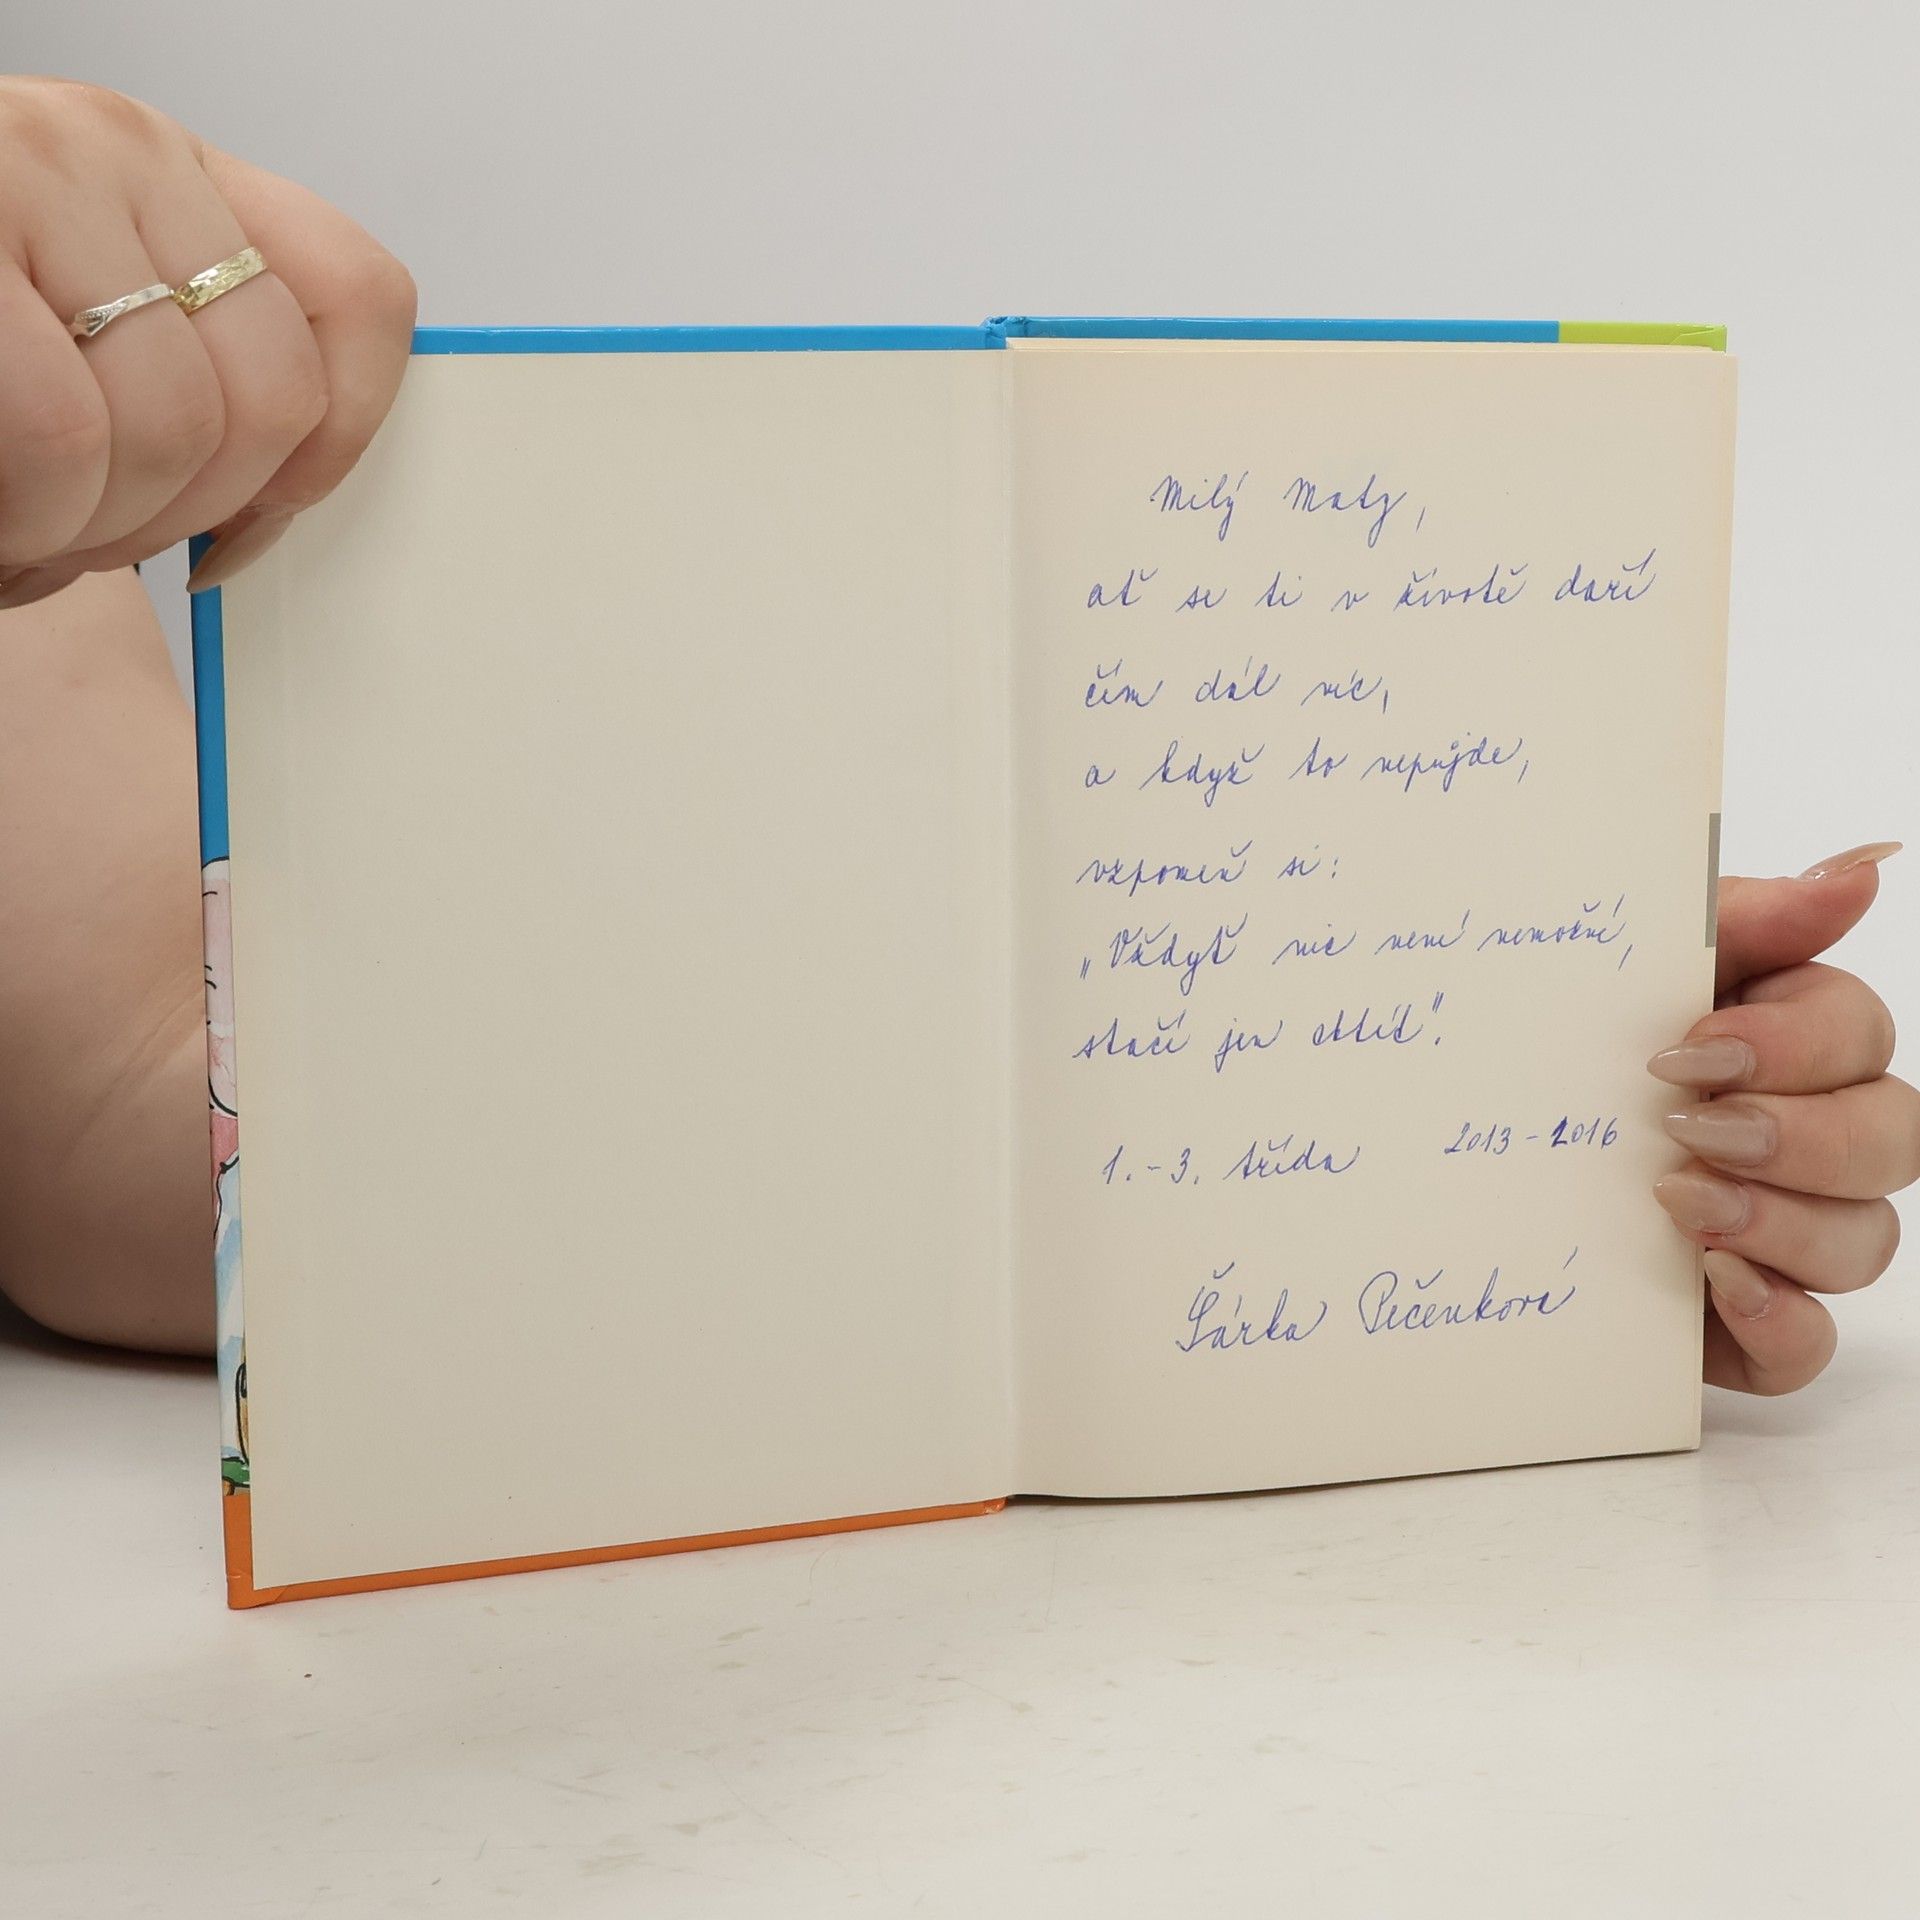 Milý Maty,
ať se ti v životě daří
čím dál víc,
a když to nepůjde,
vzpomeň si:
„Vždyť nic není nemožné,
stačí jen chtít".
1. - 3. třída 2013 - 2016
Šárka Pečenková